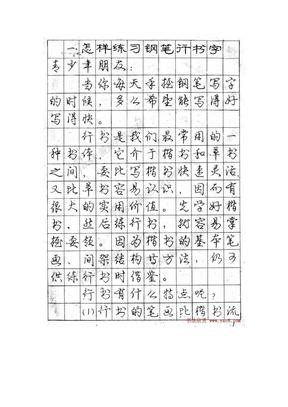 一、怎样练习钢笔行书字
青少年朋友：
当你每天手握钢笔写字
的时候，多么希望能写得好
写得快。
行书是我们最常用的一
种书体，它介于楷书和草书
之间，要比写楷书快速灵活，
又比草书容易认识，因而有
很大的实用价值。先学好楷
书，然后练行书，就容易掌
握要领。因为楷书的基本笔
画、间架结构书写方法，仍可
供练行书时借鉴。
行书有什么特点呢？
(1)行书的笔画比楷书流
1